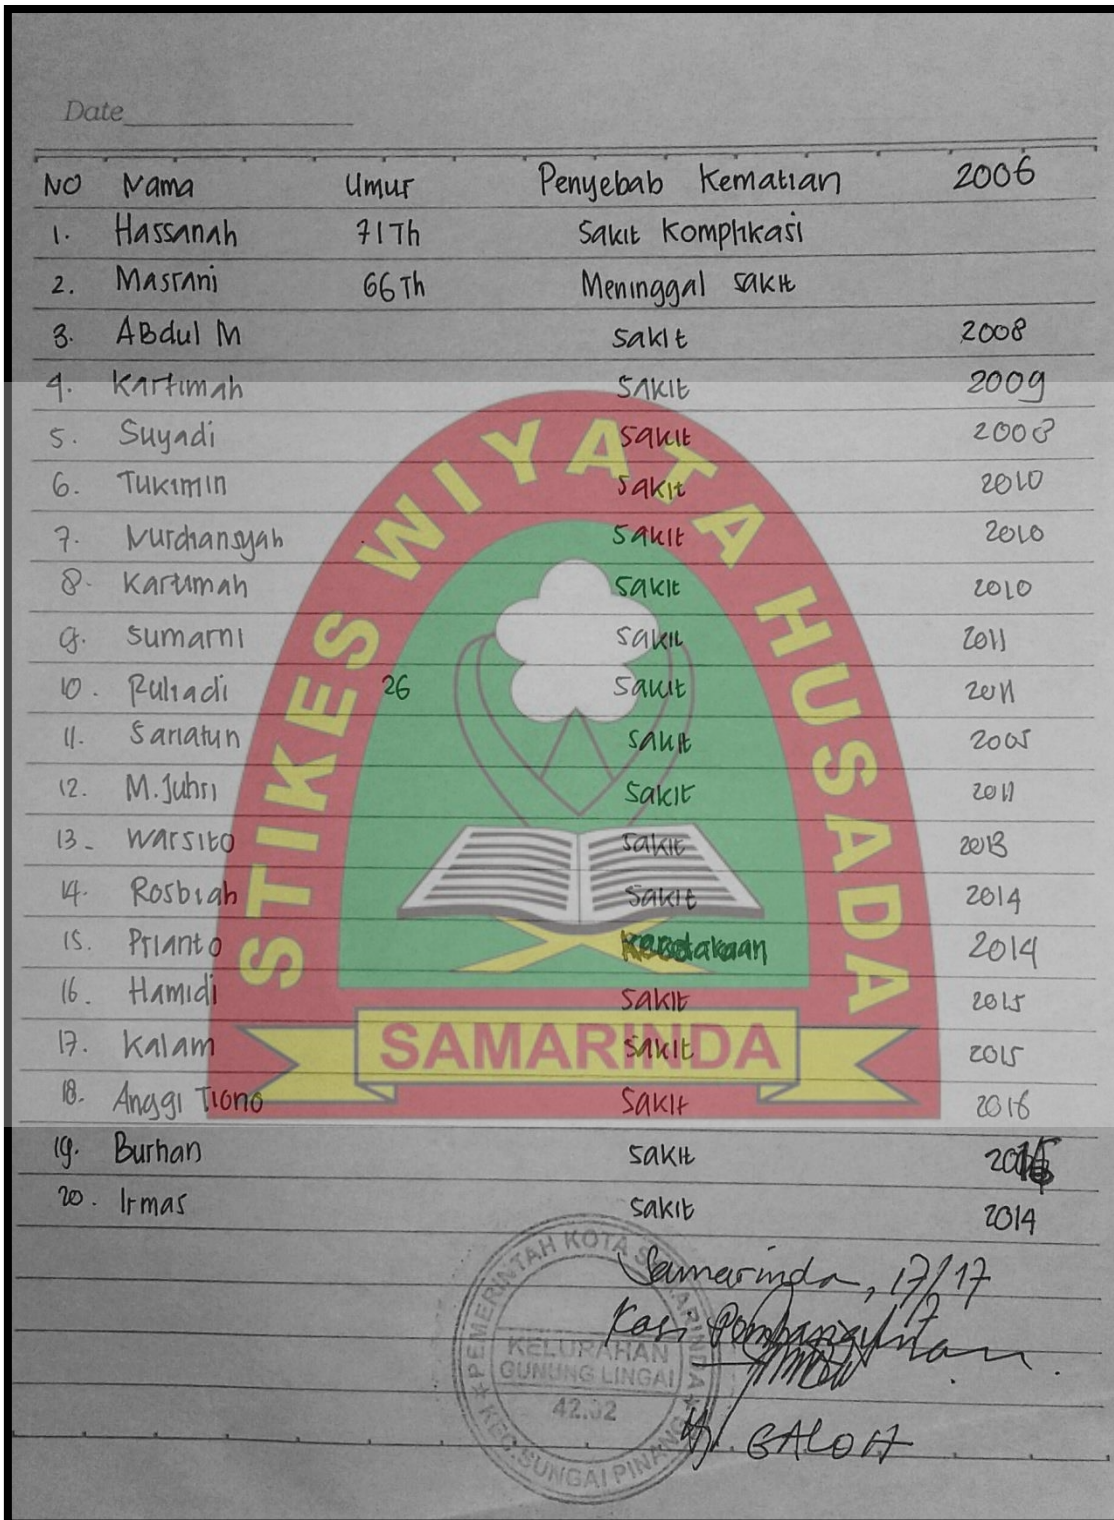 Date
NO Nama Umur Penyebab Kematian 2006
1. Hassanah 71 Th Sakit Komplikasi
2. Masrani 66 Th Meninggal sakit
3. ABdul M sakit 2008
4. Kartimah sakit 2009
5. Suyadi sakit 2008
6. Tukimin sakit 2010
7. Nurdiansyah sakit 2010
8. Kartimah sakit 2010
9. Sumarni sakit 2011
10. Ruhadi 26 sakit 2011
11. Sariatun sakit 2005
12. M. Juhri sakit 2011
13. Warsito sakit 2013
14. Rosbiah sakit 2014
15. Prianto 2014
16. Hamidi sakit 2015
17. Kalam sakit 2015
18. Anggi Tiono sakit 2016
19. Burhan sakit
20. Irmas sakit 2014
Samarinda, 17/17
Kasi Pembangunan
GALOH
STIKES WIYATA HUSADA
SAMARINDA
PEMERINTAH KOTA SAMARINDA
KELURAHAN
GUNUNG LINGAI
42.02
KEC. SUNGAI PINANG